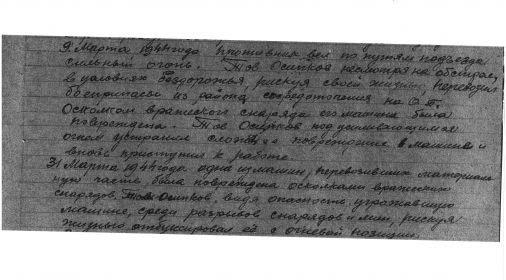 9 Марта 1944 года противник вел по путям подъезда
сильный огонь. Тов Осипков несмотря на обстрел,
в условиях бездорожья, рискуя своей жизнью, перевозил
боеприпасы из района сосредоточения на О.П.
Осколком вражеского снаряда его машина была
повреждена. Тов Осипков под усиливающимся
огнем устранил сложное повреждение в машине и
вновь приступил к работе.
31 Марта 1944 года одна из машин, перевозивших материаль
ную часть, была повреждена осколками вражеских
снарядов. Тов Осипков, видя опасность, угрожавшую
машине, среди разрывов снарядов и мин, рискуя
жизнью отбуксировал её с огневой позиции.